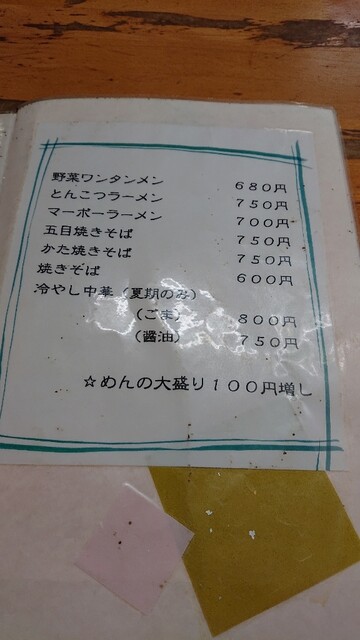 野菜ワンタンメン 680円
とんこつラーメン 750円
マーボーラーメン 700円
五目焼きそば 750円
かた焼きそば 750円
焼きそば 600円
冷やし中華（夏期のみ）
（ごま） 800円
（醤油） 750円
☆めんの大盛り100円増し